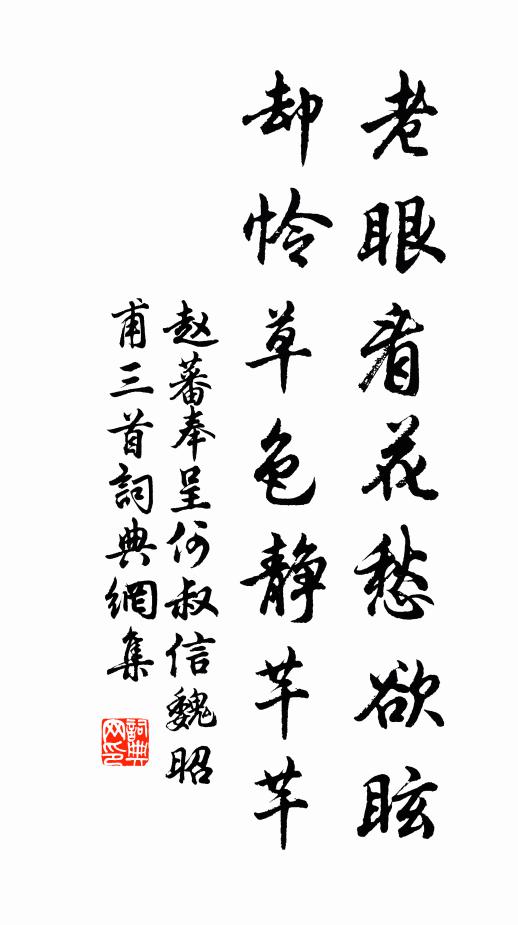 老眼看花愁欲眩
却怜草色静芊芊
赵蕃奉呈何叔信魏昭
甫三首詞典網集
詞典
网印